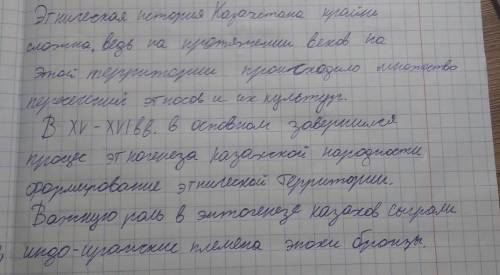 Этническая история Казахстана крайне
сложна, ведь на протяжении веков на
этой территории происходило множество
пересечений этносов и их культур.
В XV-XVI вв. в основном завершился
процес этногенеза казахской народности
формирование этнической территории.
Важную роль в энтогенезе казахов сыграли
индо-иранские племена эпохи бронзы.